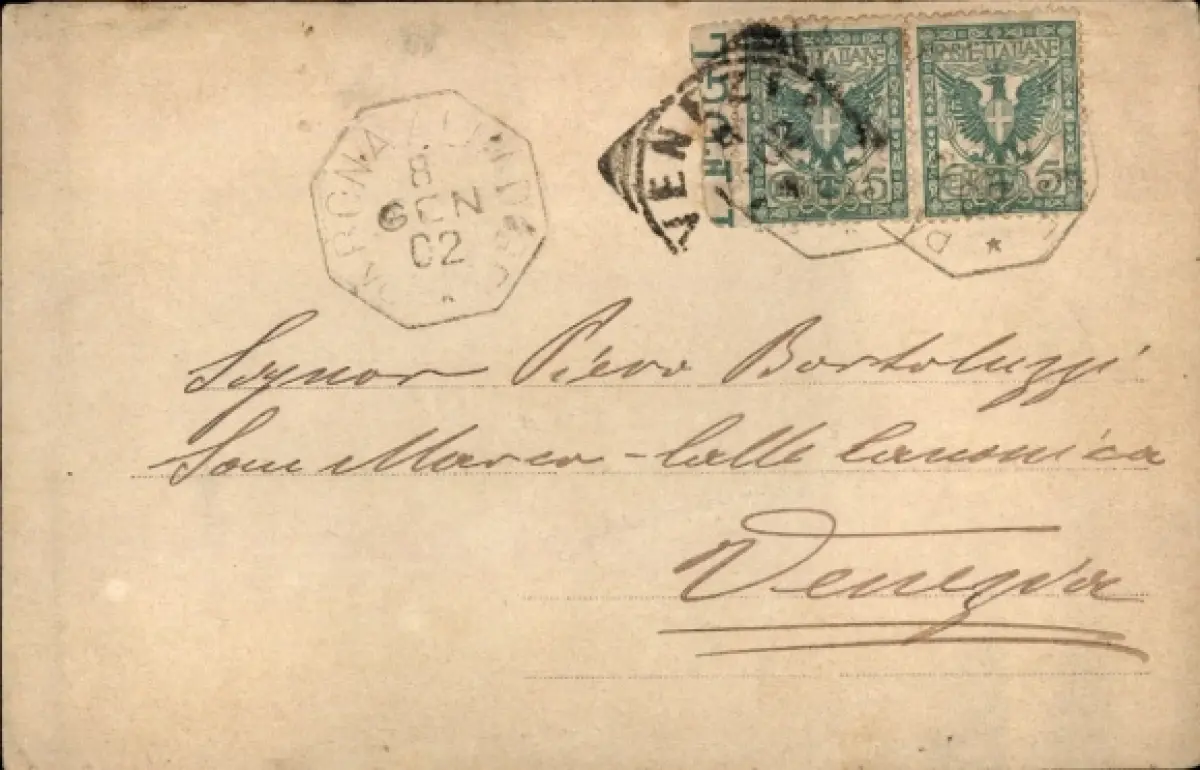 POSTE ITALIANE
POSTE ITALIANE
CENT. 5
CENT. 5
VENEZIA
8
GEN
02
Signor Piero Bortoluzzi
San Marco - Calle Canonica
Venezia